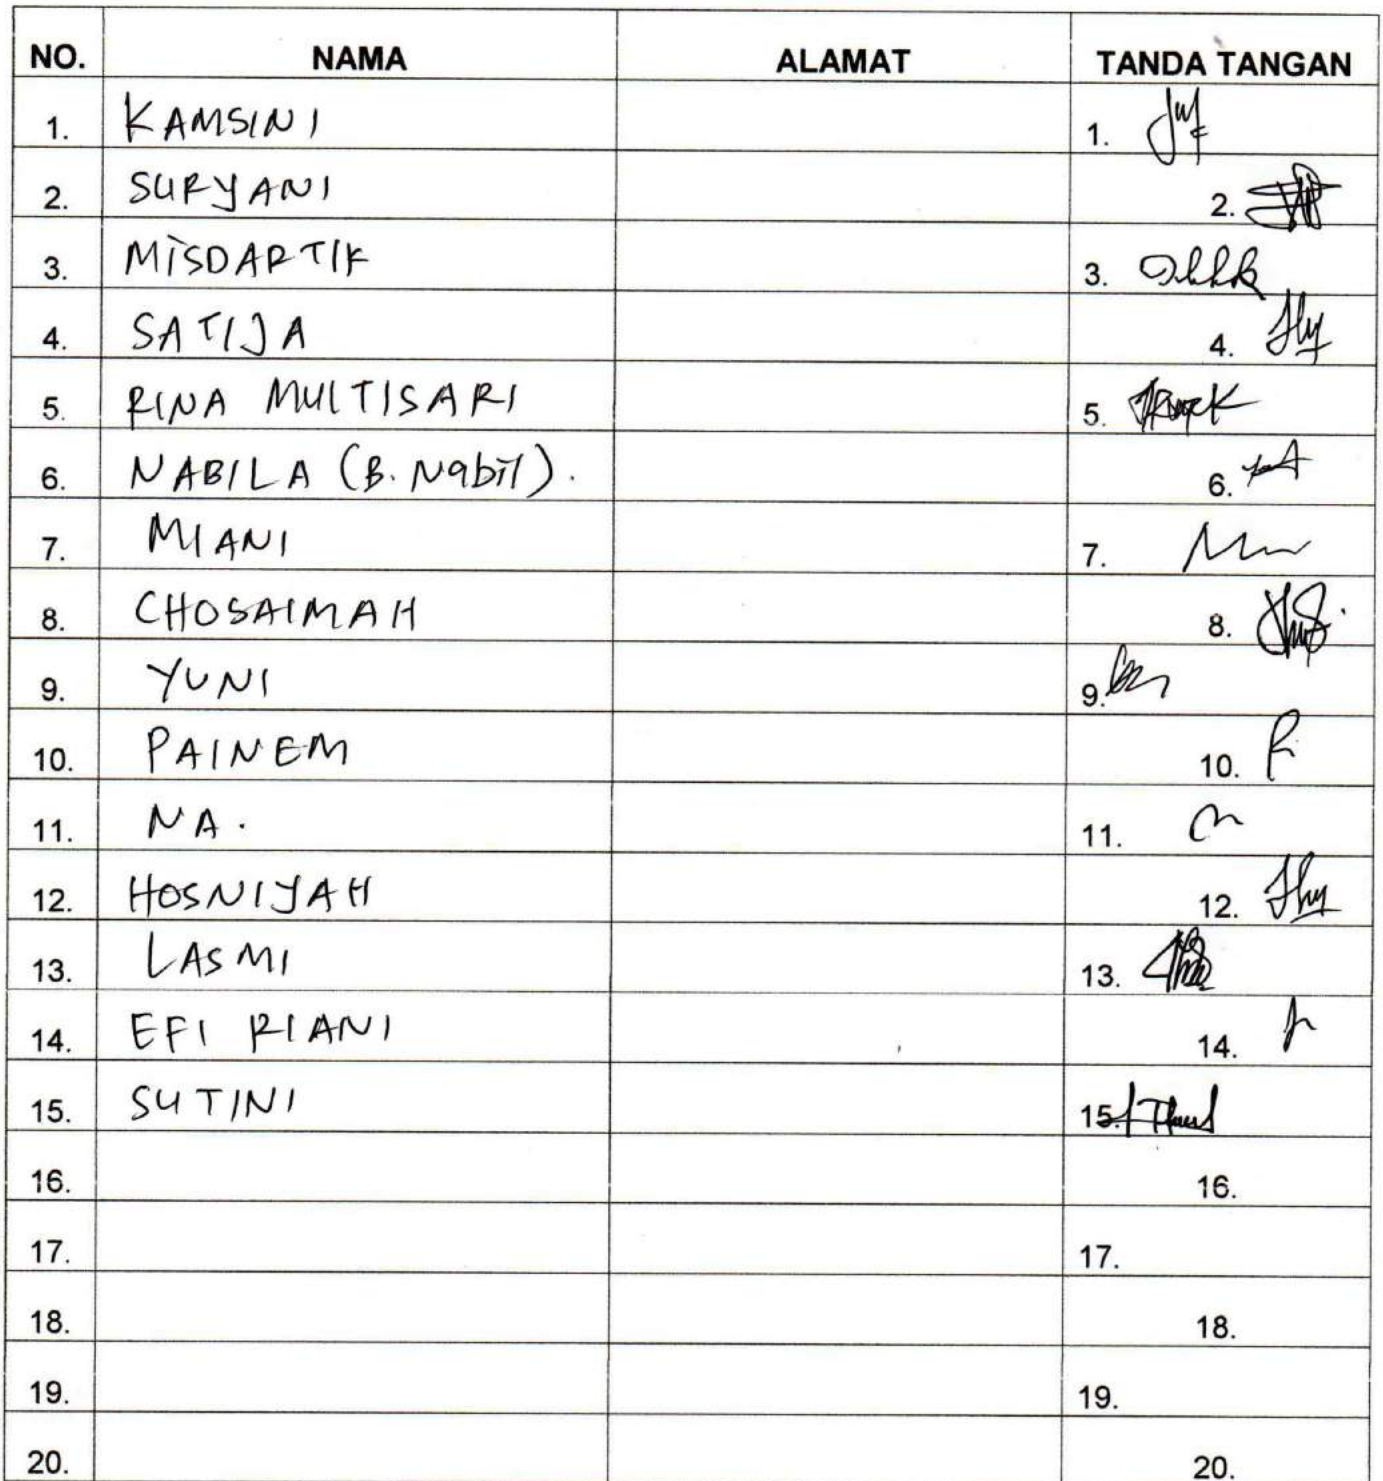 NO. NAMA ALAMAT TANDA TANGAN
1. KAMSINI 1.
2. SURYANI 2.
3. MISDARTIK 3.
4. SATIJA 4.
5. RINA MULTISARI 5.
6. NABILA (B. Nabil). 6.
7. MIANI 7.
8. CHOSAIMAH 8.
9. YUNI 9.
10. PAINEM 10.
11. NA. 11.
12. HOSNIYAH 12.
13. LASMI 13.
14. EFI RIANI 14.
15. SUTINI 15.
16. 16.
17. 17.
18. 18.
19. 19.
20. 20.